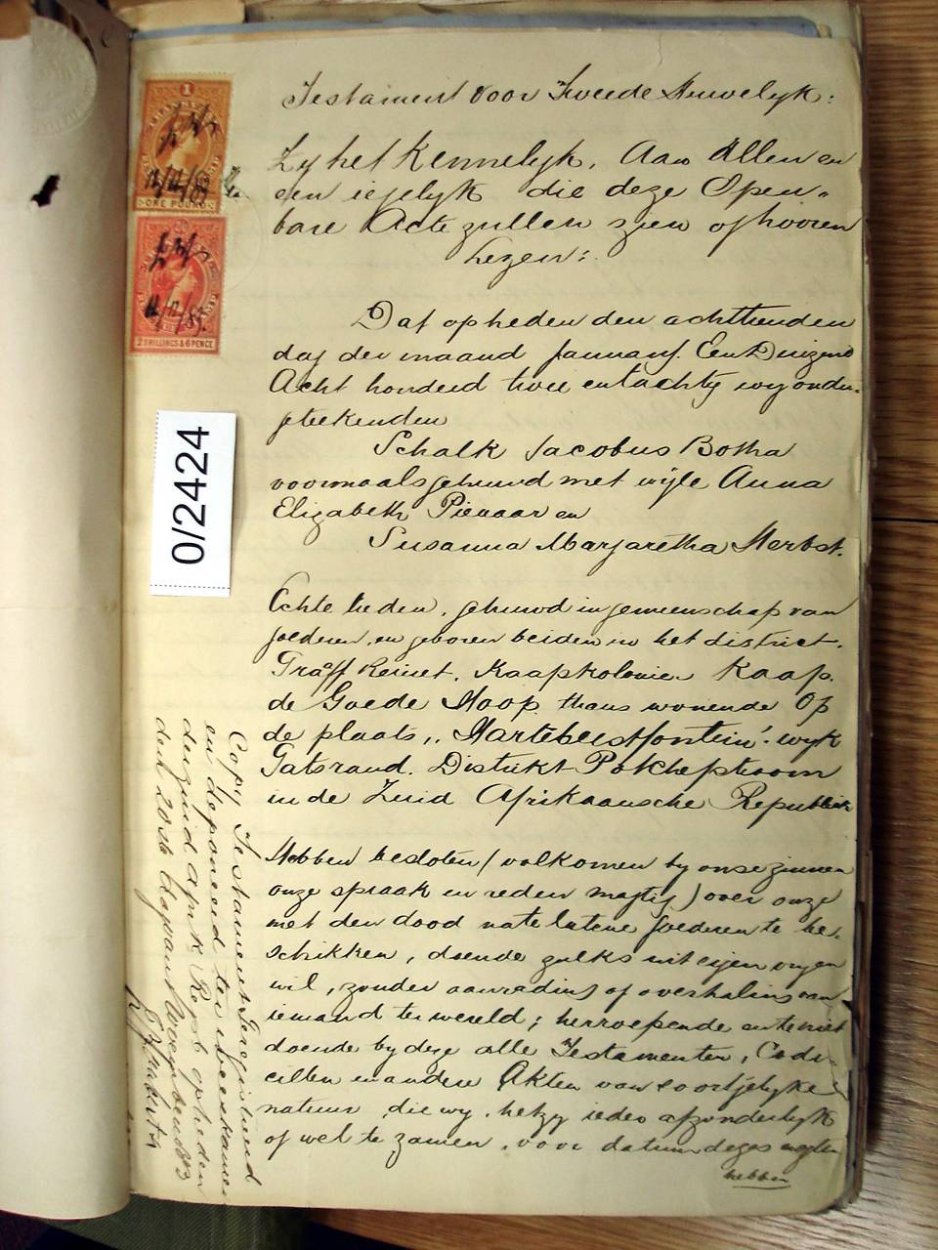 Testament voor Tweede Huwelyk:
Zy het Kennelyk, Aan Allen en
een iegelyk die deze Open-
bare Acte zullen zien of hooren
Lezen:
Dat op heden den achttienden
dag der maand January. Een Duizend
Acht honderd twee en tachtig wy onder-
geteekenden
Schalk Jacobus Botha
voormaals gehuwd met wyle Anna
Elizabeth Pienaar en
Susanna Margaretha Herbst.
Echte lieden, gehuwd in gemeenschap van
goederen, en geboren beiden in het district
Graaff Reinet, Kaapkolonie. Kaap
de Goede Hoop. thans wonende Op
de plaats „Hartebeestfontein" wyk
Gatsrand. Distrikt Potchefstroom
in de Zuid Afrikaansche Republiek
Hebben besloten (volkomen by onze zinnen
onze spraak en reden magtig) over onze
met den dood nate latene goederen te be-
schikken, doende zulks uit eigen vryen
wil, zonder aanrading of overhaling van
iemand ter wereld; herroepende en te niet
doende by deze alle Testamenten, Codi-
cillen en andere Akten van soortgelyke
natuur die wy, hetzy ieder afzonderlyk
of wel te zamen, voor datum dezes mogten
hebben
ONE POUND
12/12/83
2 SHILLINGS & 6 PENCE
12/12/83
0/24424
Copy Testament Geregistreerd
en deponeerd ter Weeskamer
der Zuid Afrik. Repb. op heden
den 20ste dag van November 1883